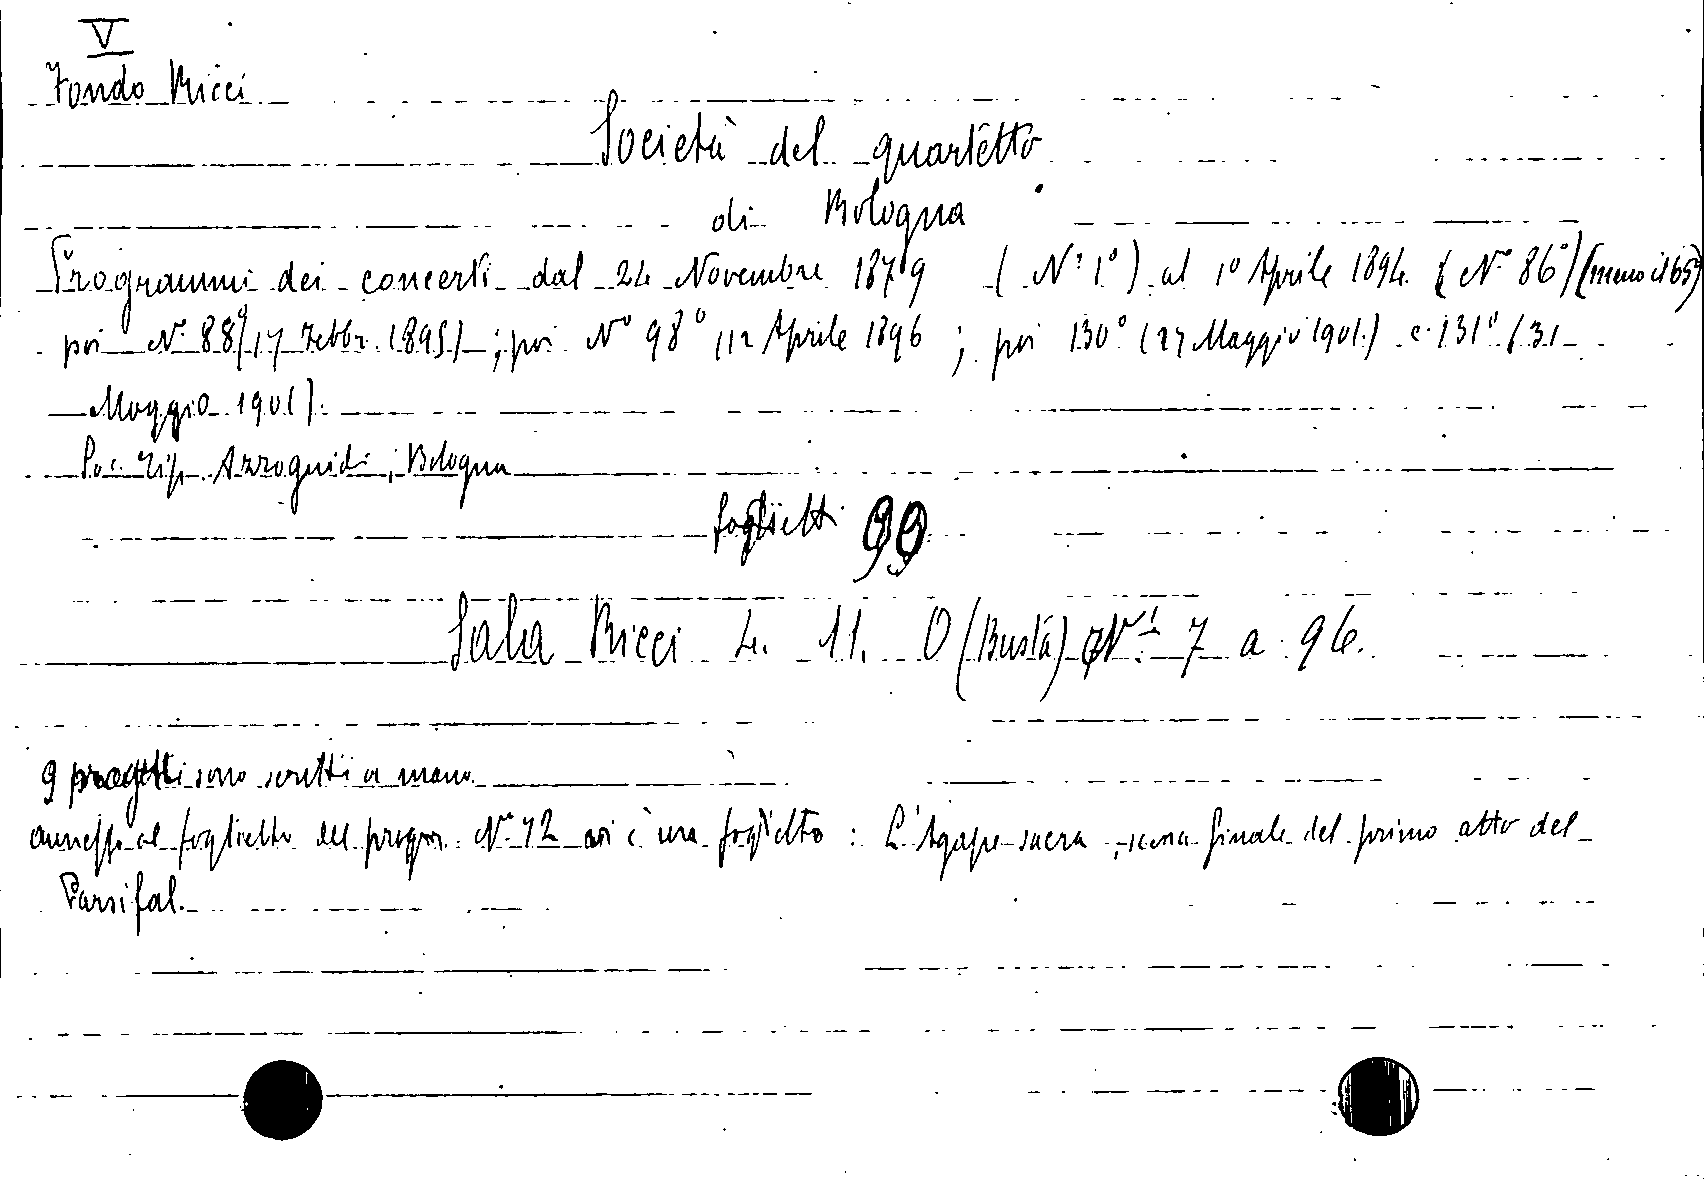 V
Fondo Ricci
Società del quartetto
di Bologna
Programmi dei concerti dal 24 Novembre 1879 (N.° 1°) al 1° Aprile 1894 (N.° 86°) (meno il 65°)
poi N.° 88° (17 Febbr. 1895) ; poi N° 98° (12 Aprile 1896 ; poi 130° (27 Maggio 1901.) e 131° (31
Maggio 1901).
Soc. Tip. Azzoguidi, Bologna
foglietti 99
Sala Ricci 4. 11. O (Busta) N.i 7 a 96.
9 progetti sono scritti a mano.
annesso al foglietto del progr. N.° 42 vi è un foglietto : L'Agape sacra, scena finale del primo atto del
Parsifal.